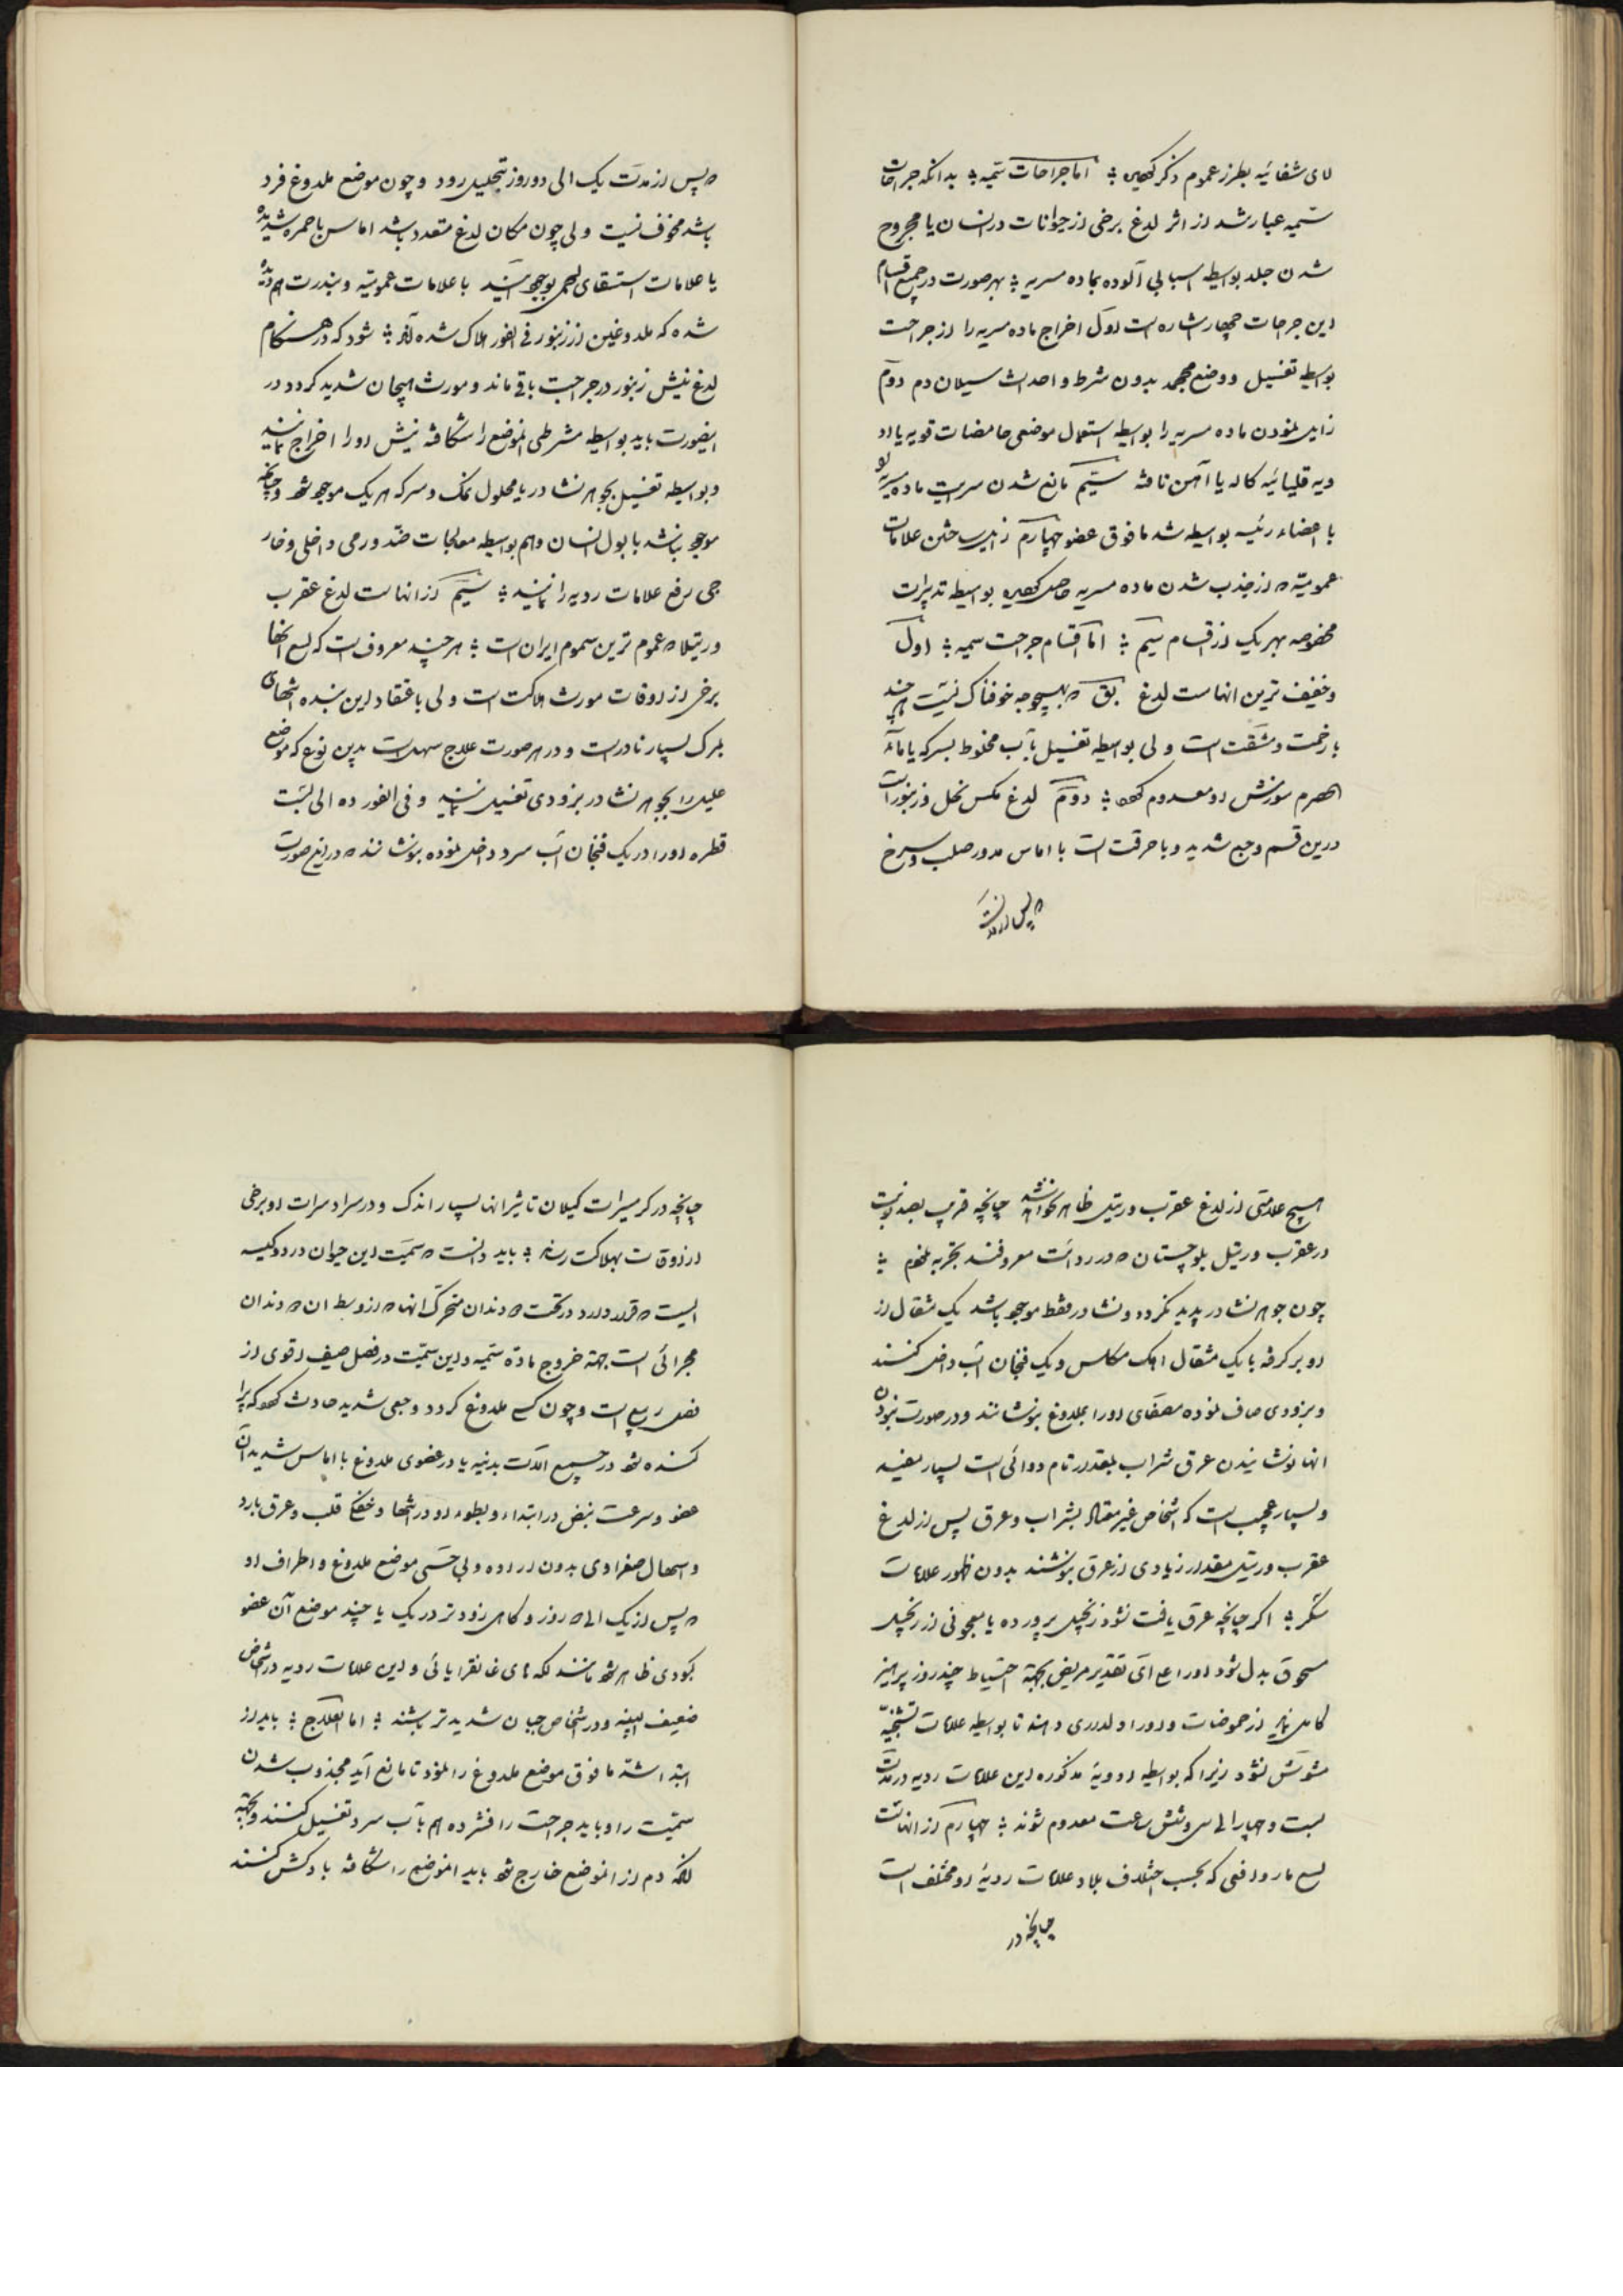 های شفائیه بطرز عموم ذکر کردیم ؞ اما جراحات سمیه ؞ بدانکه جراحات
سمیه عبارتند از اثر لدغ برخی از حیوانات در انسان یا مجروح
شدن جلد بواسطه اسبابی آلوده بماده مسریه ؞ بهر صورت در جمیع اقسام
این جراحات چهار اشاره است اول اخراج ماده مسریه را از جراحت
بواسطه تغسیل و وضع محجمه بدون شرط و احداث سیلان دم دوم
زایل نمودن ماده مسریه را بواسطه استعمال موضعی حامضات قویه یا اد
ویه قلیائیه کاله یا آهن تافته سیم مانع شدن سرایت ماده مسریه
باعضاء رئیسه بواسطه شد مافوق عضو چهارم زایل ساختن علامات
عمومیه که از جذب شدن ماده مسریه حاصل کردیده بواسطه تدبیرات
مخصوصه بهر یک از اقسام سیم ؞ اما اقسام جراحت سمیه ؞ اول
و خفیف ترین انهاست لدغ بق که بهیچوجه خوفناک نیست هر چند
با زحمت و مشقت است ولی بواسطه تغسیل بآب مخلوط بسرکه یا ماء
الحصرم سوزش او معدوم کردد ؞ دوم لدغ مکس نحل و زنبور است
درین قسم وجع شدید و با حرقت است با اماس مدور صلب و سرخ
که پس از مدت
که پس از مدت یک الی دو روز بتحلیل رود و چون موضع ملدوغ فرد
باشد مخوف نیست ولی چون مکان لدغ متعدد باشد اماس با حمره شدیده
یا علامات استسقای لحمی بوجود آیند با علامات عمومیه و بندرت هم دیده
شده که ملدوغین از زنبور فی الفور هلاک شده اند ؞ شود که در هنکام
لدغ نیش زنبور در جراحت باقی ماند و مورث هیجان شدید کردد در
اینصورت باید بواسطه مشرطی انموضع را شکافته نیش او را اخراج نمایند
و بواسطه تغسیل بجوهر نشادر یا محلول نمک و سرکه هر یک موجود شود و چنانچه
موجود نباشد با بول انسان و هم بواسطه معالجات ضد ورمی داخلی و خار
جی رفع علامات ردیه را نمایند ؞ سیم از انهاست لدغ عقرب
و رتیلا که عموم ترین سموم ایران است ؞ هر چند معروف است که لسع انها
برخی از اوقات مورث هلاکت است ولی باعتقاد این بنده انتهای
بمرک بسیار نادر است و در هر صورت علاج سهل است بدین نوع که موضع
علیل را بجوهر نشادر بزودی تغسیل نمایند و فی الفور ده الی بیست
قطره او را در یک فنجان آب سرد داخل نموده بنوشانند که در اینصورت
هیچ علامتی از لدغ عقرب و رتیل ظاهر نخواهد شد چنانچه قریب بصد نوبت
در عقرب و رتیل بلوچستان که در ردائت معروفند تجربه نمودم ؞
چون جوهر نشادر پدید نکردد و نشادر فقط موجود باشد یک مثقال از
او بر کرفته با یک مثقال اهک مکلس و یک فنجان آب داخل کنند
و بزودی صاف نموده مصفای او را بملدوغ بنوشانند و در صورت نبودن
انها نوشانیدن عرق شراب بمقدار تام دوائی است بسیار مفید
و بسیار عجیب است که اشخاص غیر معتاد بشراب و عرق پس از لدغ
عقرب و رتیل مقدار زیادی از عرق بنوشند بدون ظهور علامات
سکر ؞ اکر چنانچه عرق یافت نشود زنجبیل پرورده یا معجونی از زنجبیل
مسحوق بدل شود او را علی ای تقدیر مریض بجهة احتیاط چند روز پرهیز
کامل نماید از حموضات و او را ولدرری دهند تا بواسطه علامات تشنجیه
مشوش نشود زیرا که بواسطه ادویه مذکوره این علامات ردیه در مدت
بیست و چهار الی سی و شش ساعت معدوم شوند ؞ چهارم از انهاست
لسع مار و افعی که بحسب اختلاف بلاد علامات ردیه او مختلف است
چنانچه در
چنانچه در کرمسیرات کیلان تاثیر انها بسیار اندک و در سردسیرات او برخی
از اوقات بهلاکت رساند ؞ باید دانست که سمیت این حیوان در دو کیسه
ایست که قرار دارد در تحت که دندان متحرک انها که از وسط ان که دندان
مجرائی است بجهة خروج مادّه سمیه و این سمیت در فصل صیف اقوی از
فصل ربیع است و چون کسی ملدوغ کردد وجعی شدید حادث کردد که پرا
کنده شود در جمیع الات بدنیه یا در عضوی ملدوغ با اماس شدید آن
عضو و سرعت نبض در ابتداء و بطوء او در انتها و خفکی قلب و عرق بارد
و اسهال صفراوی بدون اراده و بی حسی موضع ملدوغ و اطراف او
که پس از یک الی که روز و کاهی زودتر در یک یا چند موضع آن عضو
کبودی ظاهر شود مانند لکه های غانقرایائی و این علامات ردیه در اشخاص
ضعیف البنیه و در اشخاص جبان شدیدتر باشند ؞ اما العلاج ؞ باید از
ابتدا شد مافوق موضع ملدوغ را نمود تا مانع آید مجذوب شدن
سمیت را و باید جراحت را فشرده هم بآب سرد تغسیل کنند و بجهة
انکه دم از انموضع خارج شود باید انموضع را شکافته بادکش کنند